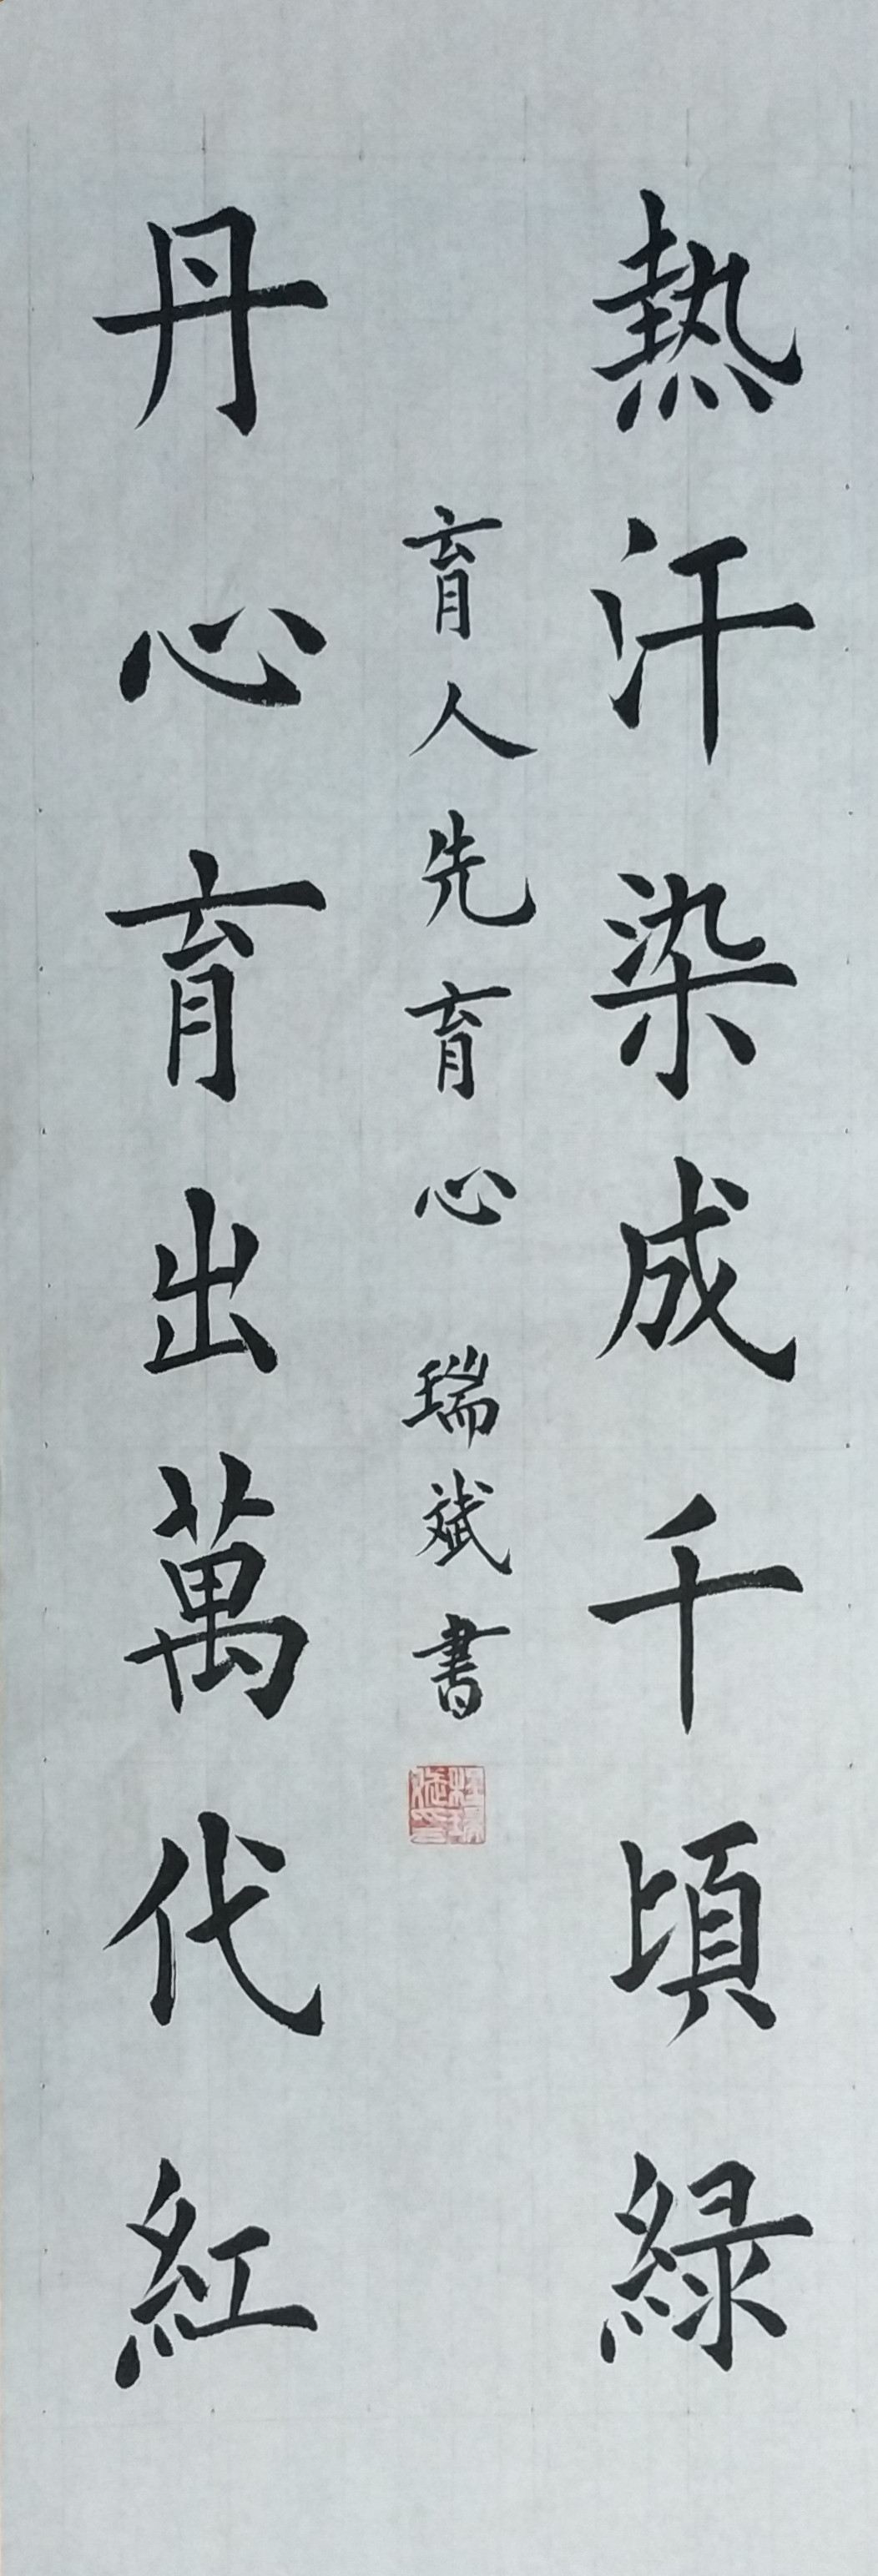 熱汗染成千頃緑
育人先育心 瑞斌書
丹心育出萬代紅